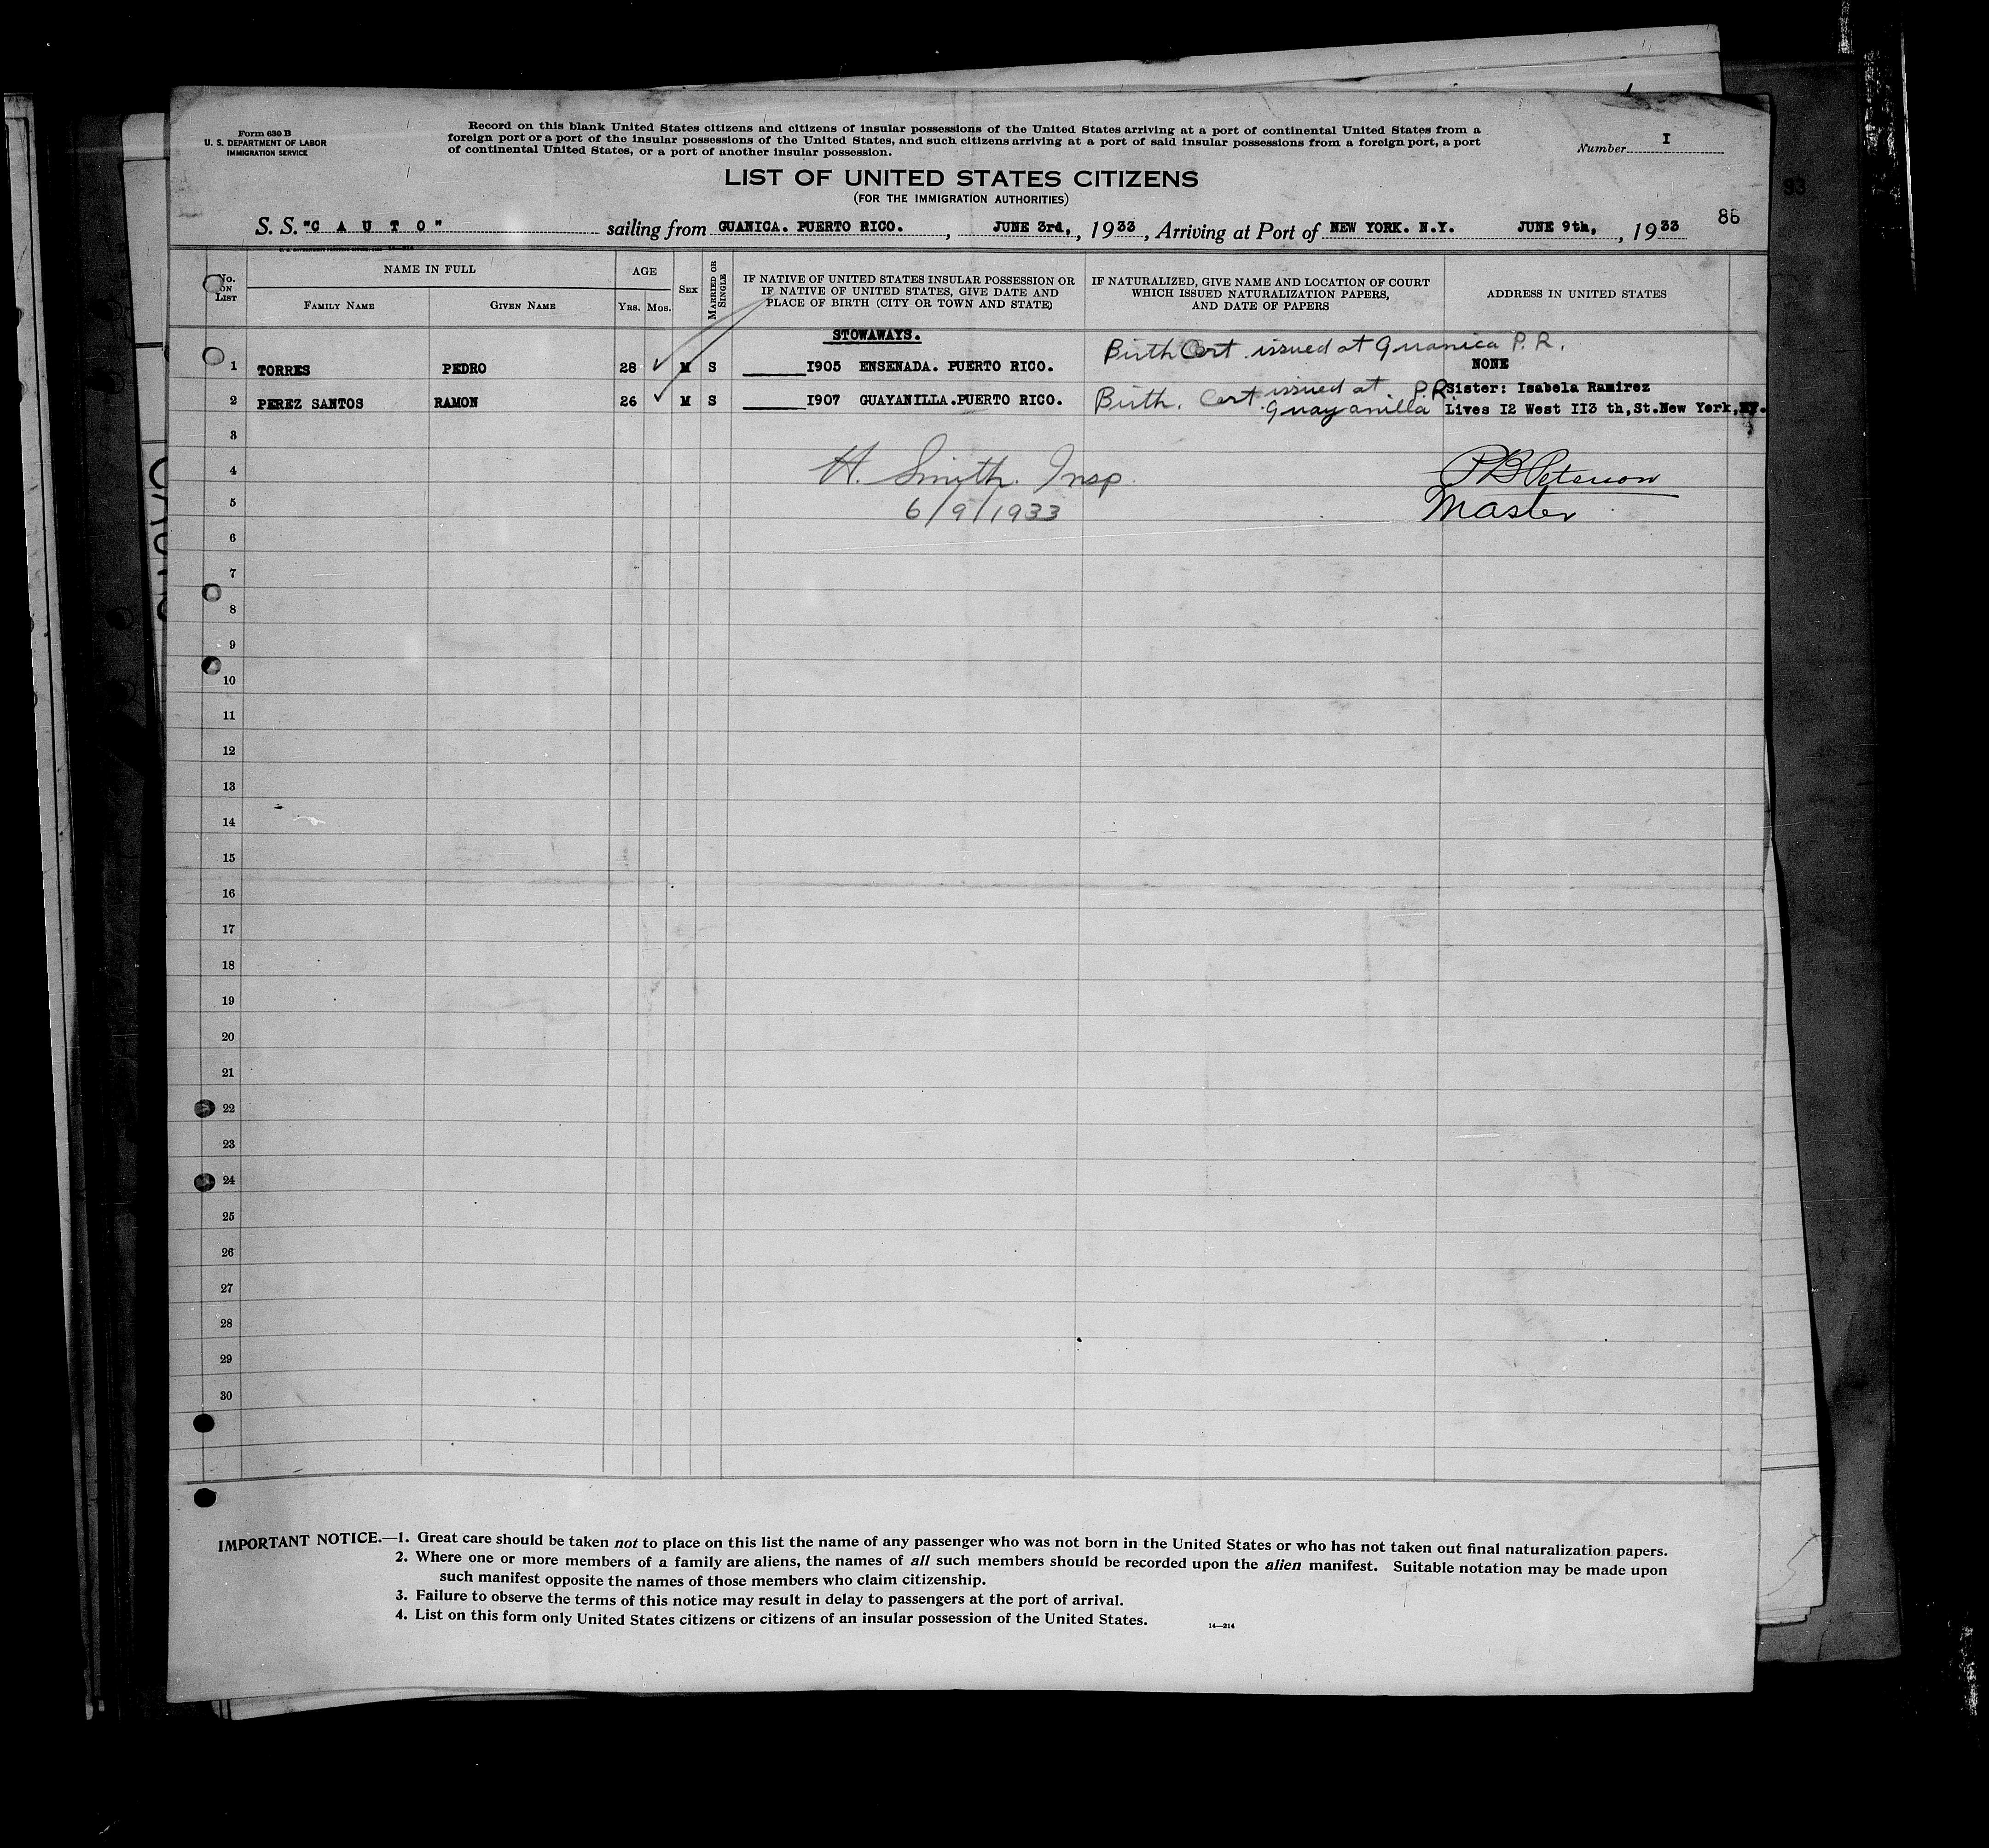 Form 630 B
U. S. DEPARTMENT OF LABOR
IMMIGRATION SERVICE
Record on this blank United States citizens and citizens of insular possessions of the United States arriving at a port of continental United States from a
foreign port or a port of the insular possessions of the United States, and such citizens arriving at a port of said insular possessions from a foreign port, a port
of continental United States, or a port of another insular possession.
Number I
LIST OF UNITED STATES CITIZENS
(FOR THE IMMIGRATION AUTHORITIES)
93
86
S. S. "C A U T O" sailing from GUANICA. PUERTO RICO. , JUNE 3rd, , 1933 , Arriving at Port of NEW YORK. N.Y. JUNE 9th, , 1933
No. ON LIST
NAME IN FULL
FAMILY NAME
GIVEN NAME
AGE
YRS.
MOS.
SEX
MARRIED OR SINGLE
IF NATIVE OF UNITED STATES INSULAR POSSESSION OR
IF NATIVE OF UNITED STATES, GIVE DATE AND
PLACE OF BIRTH (CITY OR TOWN AND STATE)
IF NATURALIZED, GIVE NAME AND LOCATION OF COURT
WHICH ISSUED NATURALIZATION PAPERS,
AND DATE OF PAPERS
ADDRESS IN UNITED STATES
STOWAWAYS.
1 TORRES PEDRO 28 ✓ M S 1905 ENSENADA. PUERTO RICO. Birth Cert issued at Guanica P.R. NONE
2 PEREZ SANTOS RAMON 26 ✓ M S 1907 GUAYANILLA.PUERTO RICO. Birth. Cert issued at Guayanilla P.R. Sister: Isabela Ramirez
Lives I2 West II3 th,St.New York,NY.
3
4 H. Smith. Insp. P B Peterson
5 6/9/1933 Master
6
7
8
9
10
11
12
13
14
15
16
17
18
19
20
21
22
23
24
25
26
27
28
29
30
IMPORTANT NOTICE.—1. Great care should be taken not to place on this list the name of any passenger who was not born in the United States or who has not taken out final naturalization papers.
2. Where one or more members of a family are aliens, the names of all such members should be recorded upon the alien manifest. Suitable notation may be made upon
such manifest opposite the names of those members who claim citizenship.
3. Failure to observe the terms of this notice may result in delay to passengers at the port of arrival.
4. List on this form only United States citizens or citizens of an insular possession of the United States.
14—214